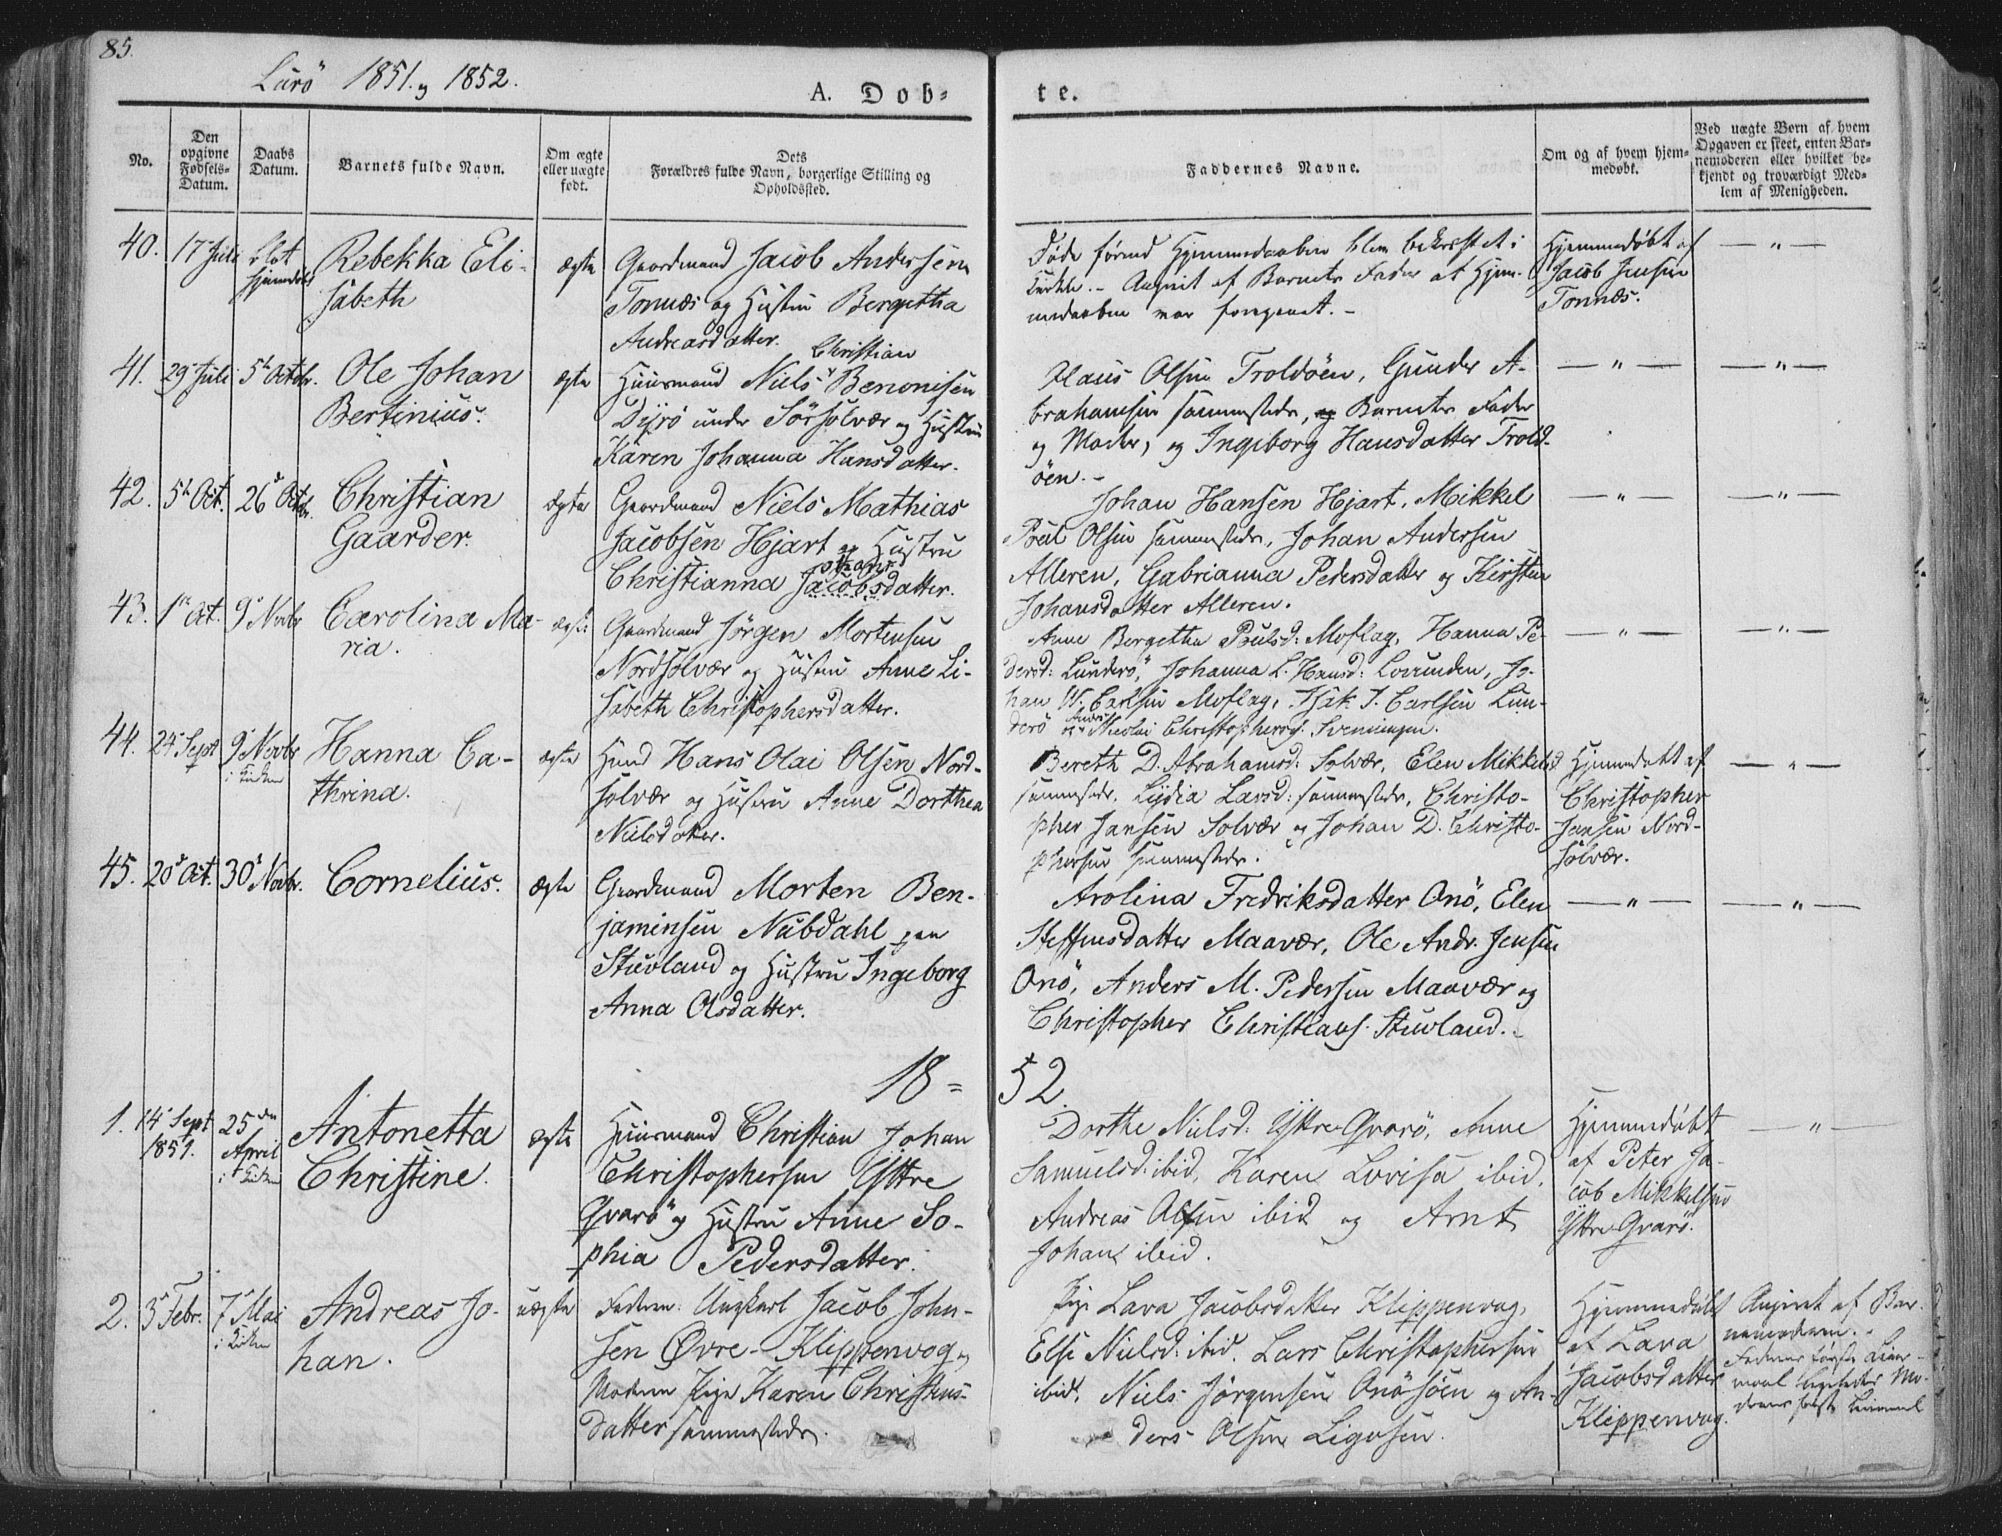 85.
Lurö 1851. og 1852.
A. Dob-
te.
No.
Den opgivne Fødsels-Datum.
Daabs Datum.
Barnets fulde Navn.
Om ægte eller uægte født.
Dets Forældres fulde Navn, borgerlige Stilling og Opholdssted.
Faddernes Navne.
Om og af hvem hjem-medøbt.
Ved uægte Børn af hvem Opgaven er skeet, enten Bar-nemoderen eller hvilket be-kjendt og troværdigt Med-lem af Menigheden.
40. 17 Juli blot hjemdøbt
Rebekka Eli-
sabeth
ægte
Gaardmand Jacob Andersen
Tonnæs og Hustru Bergitha
Andreasdatter.
Døde førend Hjemmedaaben blev bekræftet i
Kirken. - Angivet af Barnets Fader at Hjem-
medaaben var foregaaet. -
Hjemmedøbt af
Jacob Jensen
Tonnæs.
— " —
41. 29 Juli 5 Octbr.
Ole Johan
Bertinius.
ægte
Christian
Huusmand Niels Benonisen
Dyrö under Sörsolvær og Hustru
Karen Johanna Hansdatter.
Hans Olsen Troldöen, Gunder A-
brahamsen sammesteds, og Barnets Fader
og Moder, og Ingeborg Hansdatter Trold-
öen. -
— " —
— " —
42. 5 Oct. 26 Octbr.
Christian
Gaarder.
ægte
Gaardmand Niels Mathias
Jacobsen Hjart og Hustru
Christianna Jacobsdatter.
Johan Hansen Hjart, Mikkel
Poul Olsen sammesteds, Johan Andersen
Alleren, Gabrianna Pedersdatter og Kirsten
Johansdatter Alleren.
— " —
— " —
43. 1 Oct. 9 Novbr
Carolina Ma-
ria.
ægte
Gaardmand Jörgen Mortensen
Nordsolvær og Hustru Anne Li-
sabeth Christophersdatter.
Anne Bergetha Poulsd: Moflag, Hanna Pe-
dersd: Lunderö, Johanna L. Hansd: Lovunden, Jo-
han W. Carlsen Moflag, Isak J. Carlsen Lun-
derö og Nicolai Christophers: Svenningen.
— " —
— " —
44. 24 Sept 9 Novbr
i Kirken
Hanna Ca-
thrina.
ægte
Hans Olai Olsen Nord-
solvær og Hustru Anne Dorthea
Nielsdatter.
Bereth D. Abrahamsd: Solvær, Elen Mikkelsd
sammesteds, Lydia Larsd: sammesteds, Christo-
pher Jansen Solvær og Johan D. Christo-
phersen sammesteds.
Hjemmedøbt af
Christopher
Jansen Nord-
solvær.
— " —
45. 20 Oct. 30 Novbr.
Cornelius.
ægte
Gaardmand Morten Ben-
jaminsen Nubdahl paa
Stuvland og Hustru Ingeborg
Anna Olsdatter.
Arolina Fredriksdatter Onö, Elen
Steffensdatter Maavær, Ole Andr. Jensen
Onö, Anders M. Pedersen Maavær og
Christopher Christians. Stuvland. -
— " —
— " —
18=
52.
1. 14 Sept 1851. 25de April
i Kirken
Antonetta
Christine.
ægte
Huusmand Christian Johan
Christophersen Yttre
Qvarö og Hustru Anne So-
phia Pedersdatter.
Dorthe Nielsd: Yttre Qvarö, Anne
Samuelsd: ibid, Karen Lovisa ibid,
Andreas Olsen ibid og Arnt
Johan ibid.
Hjemmedøbt
af Peter Ja-
cob Mikkelsen
Yttre Qvarö.
— " —
2. 3 Febr. 7 Mai
i Kirken
Andreas Jo-
han.
uægte
Faderen: Ungkarl Jacob John-
sen Øvre-Klippenvog og
Moderen Pige Karen Christens-
datter sammesteds.
Pige Lava Jacobsdatter Klippenvag,
Else Nielsd: ibid. Lars Christophersen
ibid. Niels Jörgensen Onösöen og An-
ders Olsen
Hjemmedøbt
af Lava
Jacobsdatter
Klippenvag.
Angivet af Bar-
nemoderen. -
Faderens første Leier-
maal ligeledes Mo-
derens første